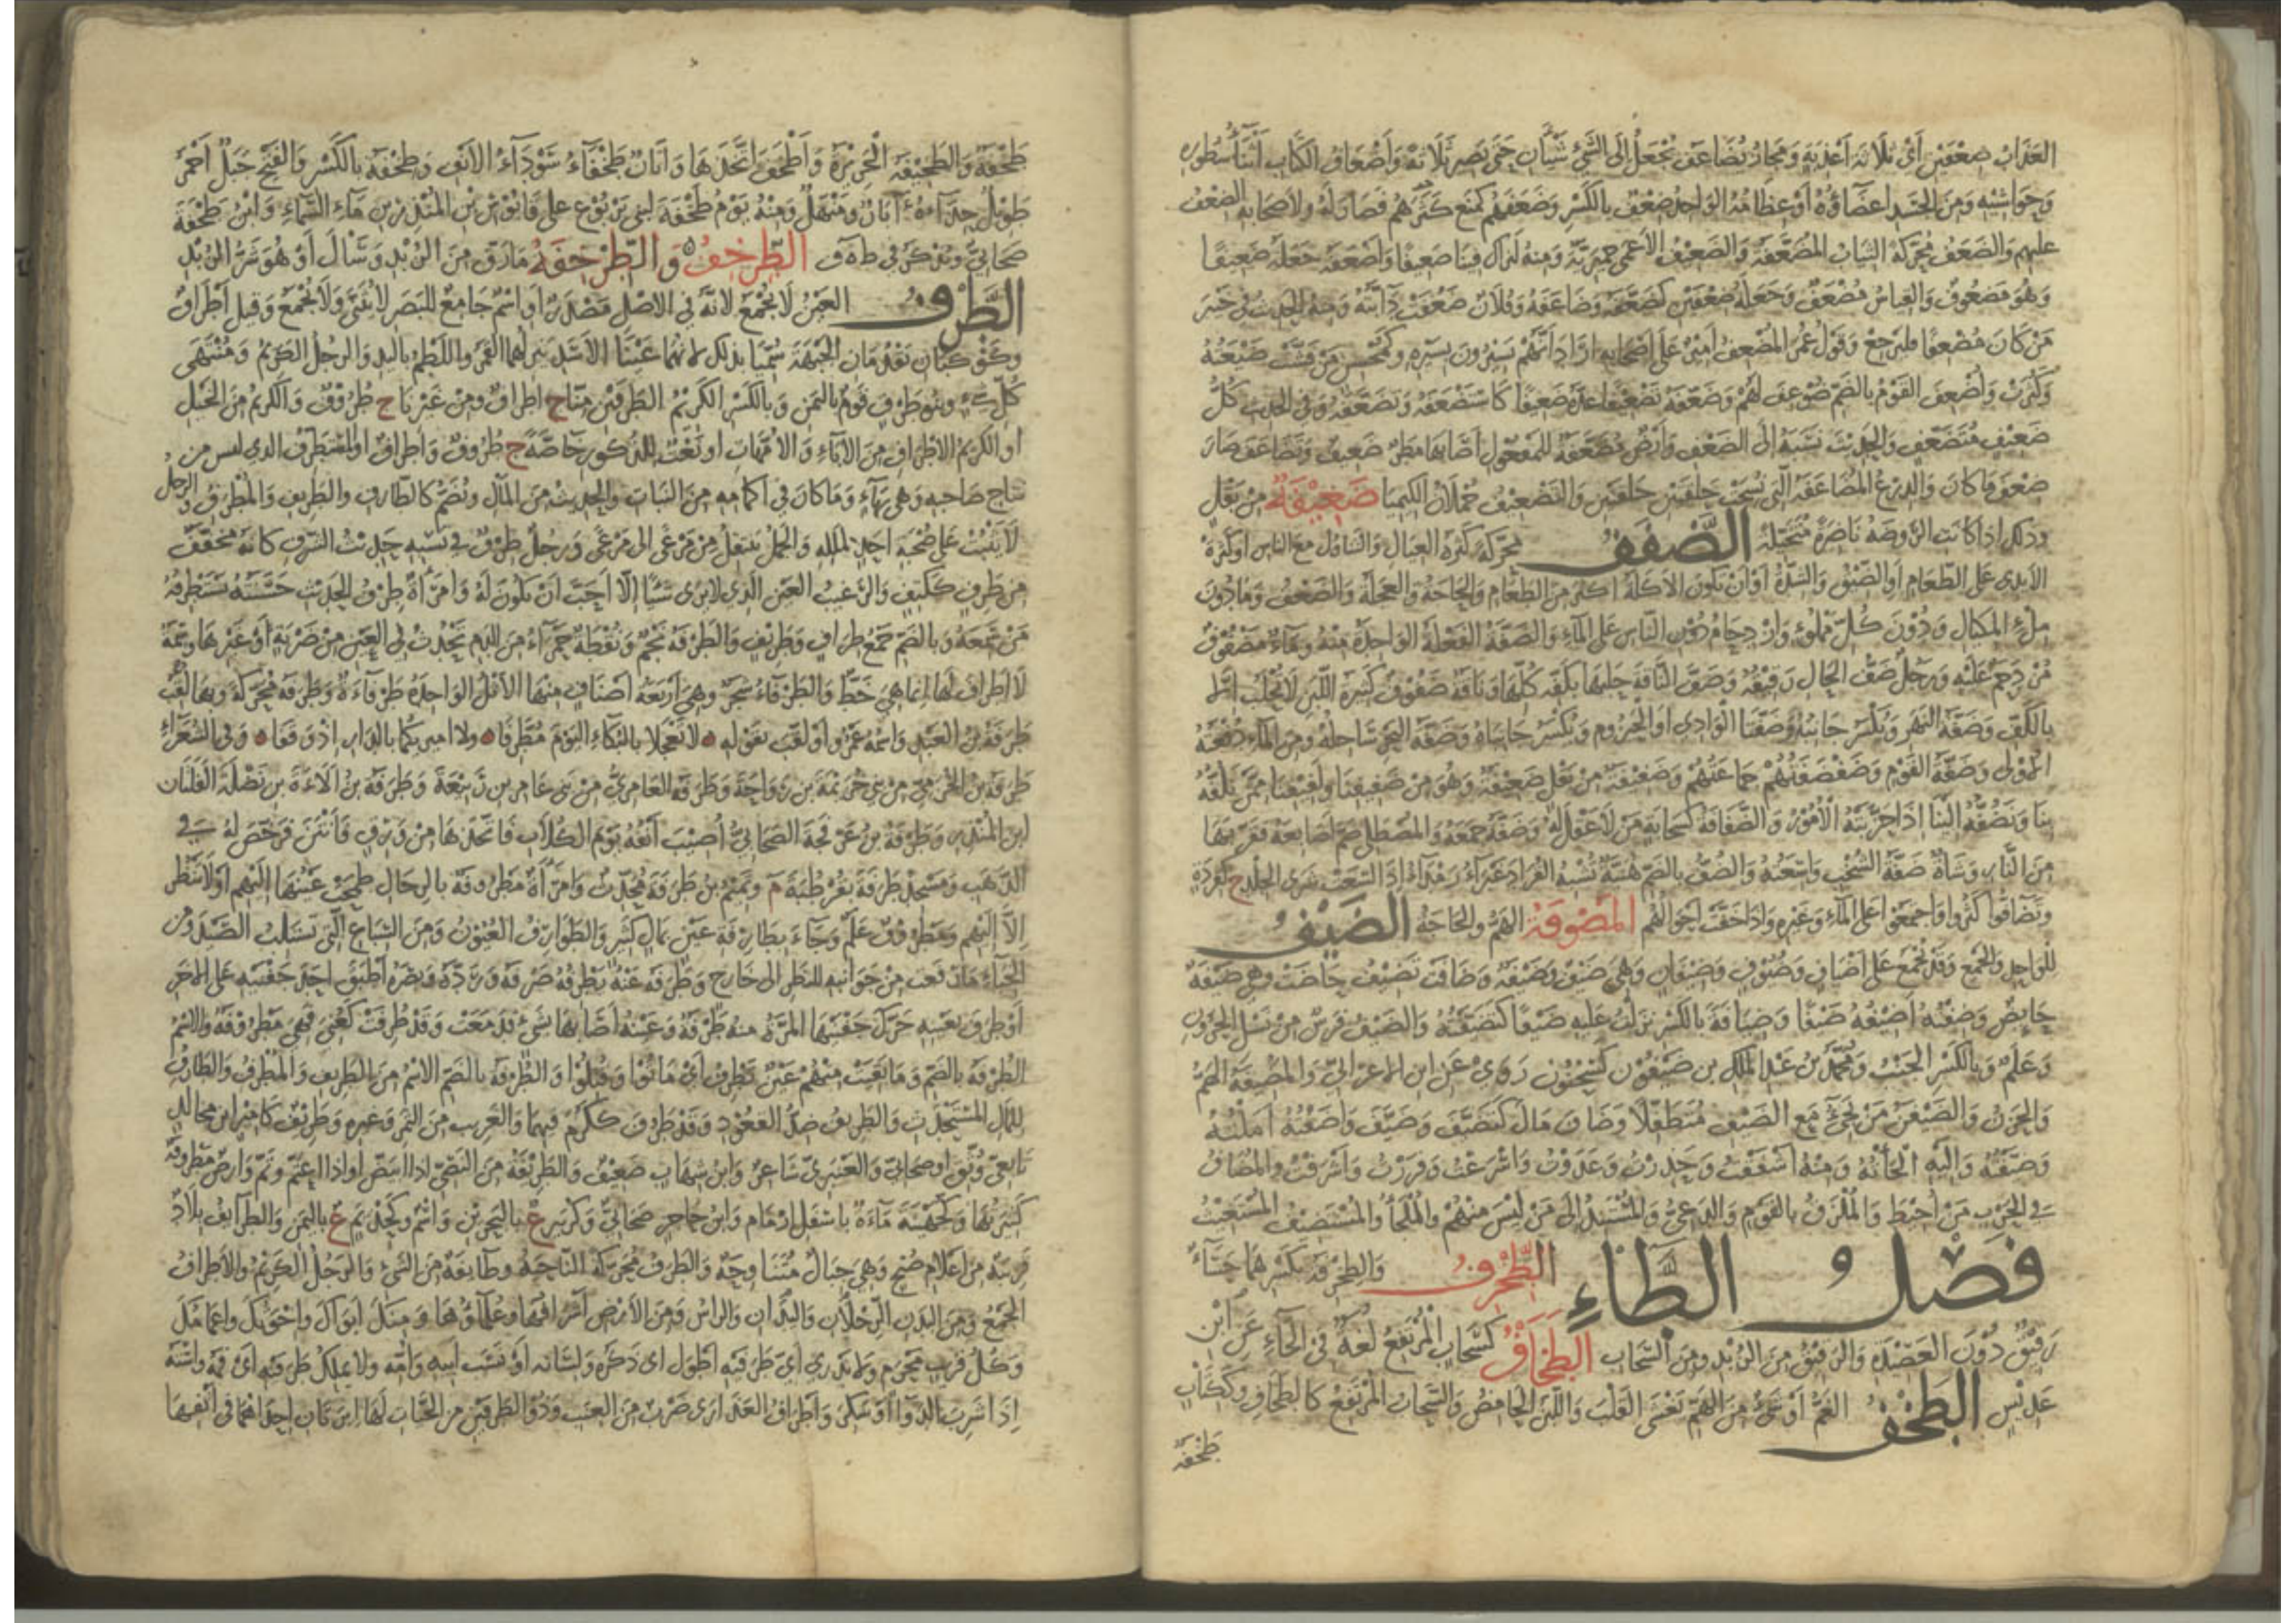 العَذَابُ ضِعْفَيْنِ أَيْ ثَلَاثَةَ أَعْذِبَةٍ وَمَجَازُ يُضَاعَفُ يُجْعَلُ إِلَى الشَّيْءِ شَيْئَانِ حَتَّى يَصِيرَ ثَلَاثَةً وَأَضْعَافُ الكِتَابِ أَثْنَاءُ سُطُورِهِ
وَحَوَاشِيْهِ وَمِنَ الجَسَدِ أَعْضَاؤُهُ أَوْ عِظَامُهُ الوَاحِدُ ضِعْفٌ بِالكَسْرِ وَضَعَفَهُمْ كَمَنَعَ كَثَرَهُمْ فَصَارَ لَهُ وَلِأَصْحَابِهِ الضِّعْفُ
عَلَيْهِمْ وَالضَّعَفُ مُحَرَّكَةً الثِّيَابُ المُضَعَّفَةُ وَالضَّعِيْفُ الأَعْمَى حِمْيَرِيَّةٌ وَمِنْهُ لَنَرَاكَ فِيْنَا ضَعِيْفًا وَأَضْعَفَهُ جَعَلَهُ ضَعِيْفًا
وَهُوَ مَضْعُوفٌ وَالقِيَاسُ مُضْعَفٌ وَجَعَلَهُ ضِعْفَيْنِ كَضَعَّفَهُ وَضَاعَفَهُ وَفُلَانٌ ضَعُفَتْ دَابَّتُهُ وَمِنْهُ الحَدِيثُ فِي خَيْبَرَ
مَنْ كَانَ مُضْعِفًا فَلْيَرْجِعْ وَقَوْلُ عُمَرَ المُضْعِفُ أَمِيْرٌ عَلَى أَصْحَابِهِ أَرَادَ أَنَّهُمْ يَسِيْرُونَ بِسَيْرِهِ وَكَمُحْسِنٍ مَنْ فَشَتْ ضَيْعَتُهُ
وَكَثُرَتْ وَأُضْعِفَ القَوْمُ بِالضَّمِّ ضُوْعِفَ لَهُمْ وَضَعَّفَهُ تَضْعِيْفًا عَدَّهُ ضَعِيْفًا كَاسْتَضْعَفَهُ وَتَضَعَّفَهُ وَفِي الحَدِيثِ كُلُّ
ضَعِيْفٍ مُتَضَعَّفٍ وَالحَدِيْثَ نَسَبَهُ إِلَى الضَّعْفِ وَأَرْضٌ مُضَعَّفَةٌ لِلْمَفْعُولِ أَصَابَهَا مَطَرٌ ضَعِيفٌ وَتَضَاعَفَ صَارَ
ضِعْفَ مَا كَانَ وَالدِّرْعُ المُضَاعَفَةُ الَّتِي نُسِجَتْ حَلْقَتَيْنِ حَلْقَتَيْنِ وَالتَّضْعِيْفُ حُمْلَانُ الكِيْمِيَا ضَغِيْفَةٌ مِنْ بَقْلٍ
وَذَلِكَ إِذَا كَانَتِ الرَّوْضَةُ نَاضِرَةً مُتَخَيِّلَةً الضَّفَفُ مُحَرَّكَةً كَثْرَةُ العِيَالِ وَالتَّنَاوُلُ مَعَ النَّاسِ أَوْ كَثْرَةُ
الأَيْدِي عَلَى الطَّعَامِ أَوِ الضِّيْقُ وَالشِّدَّةُ أَوْ أَنْ تَكُونَ الأَكَلَةُ أَكْثَرَ مِنَ الطَّعَامِ وَالحَاجَةُ وَالعَجَلَةُ وَالضَّعْفُ وَمَا دُوْنَ
مِلْءِ المِكْيَالِ وَدُوْنَ كُلِّ مَمْلُوءٍ وَازْدِحَامُ النَّاسِ عَلَى المَاءِ وَالضَّفَّةُ الفَعْلَةُ الوَاحِدَةُ مِنْهُ وَمَاءٌ مَضْفُوْفٌ
مُزْدَحَمٌ عَلَيْهِ وَرَجُلٌ ضَفُّ الحَالِ رَقِيْقُهُ وَضَفَّ النَّاقَةَ حَلَبَهَا بِكَفِّهِ كُلِّهَا وَنَاقَةٌ ضَفُوْفٌ كَثِيْرَةُ اللَّبَنِ لَا تُحْلَبُ إِلَّا
بِالكَفِّ وَضَفَّةُ النَّهْرِ وَيُكْسَرُ جَانِبُهُ وَضَفَّتَا الْوَادِي أَوِ الحَيْزُومِ وَيُكْسَرُ جَانِبَاهُ وَضَفَّةُ البَحْرِ سَاحِلُهُ وَمِنَ المَاءِ دُفْعَتُهُ
الأُوْلَى وَضَفَّةُ القَوْمِ وَضَفْضَفَتُهُمْ جَمَاعَتُهُمْ وَضَفِيْفَةٌ مِنْ بَقْلٍ ضَغِيْفَةٌ وَهُوَ مِنْ ضَفِيْفِنَا وَلَفِيْفِنَا مِمَّنْ نَلُفُّهُ
بِنَا وَنَضُفُّهُ إِلَيْنَا إِذَا حَزَبَتْهُ الأُمُوْرُ وَالضَّفَافَةُ كَسَحَابَةٍ مَنْ لَا عَقْلَ لَهُ وَضَفَّهُ جَمَعَهُ وَالمُصْطَلِي ضَمَّ أَصَابِعَهُ فَقَرَّبَهَا
مِنَ النَّارِ وَشَاةٌ ضَفَّةُ الشُّخْبِ وَاسِعَتُهُ وَالضُّفُّ بِالضَّمِّ هُنَيَّةٌ تُشْبِهُ القُرَادَ غَبْرَاءُ رَمْدَاءُ إِذَا لَسَعَتْ شَرِيَ الجِلْدُ ج كَقِرَدَةٍ
وَتَضَافُّوا كَثُرُوا وَاجْتَمَعُوا عَلَى المَاءِ وَغَيْرِهِ وَإِذَا خَفَّتْ أَحْوَالُهُمْ المَضُوفَةُ الهَمُّ وَالحَاجَةُ الضَّيْفُ
لِلْوَاحِدِ وَالجَمْعِ وَقَدْ يُجْمَعُ عَلَى أَضْيَافٍ وَضُيُوْفٍ وَضِيْفَانٍ وَهِيَ ضَيْفٌ وَضَيْفَةٌ وَضَافَتْ تَضِيْفُ حَاضَتْ وَهِيَ ضَيْفَةٌ
حَائِضٌ وَضِفْتُهُ أَضِيْفُهُ ضَيْفًا وَضِيَافَةً بِالكَسْرِ نَزَلْتُ عَلَيْهِ ضَيْفًا كَتَضَيَّفْتُهُ وَالضَّيْفُ فَرَسٌ مِنْ نَسْلِ الحَرُوْنِ
وَعَلَمٌ وَبِالكَسْرِ الجَنْبُ وَمُحَمَّدُ بْنُ عَبْدِ المَلِكِ بْنِ ضَيْفُوْنٍ كَسَحْنُوْنٍ رَوَى عَنِ ابْنِ الأَعْرَابِيِّ وَالمَضِيْفَةُ الهَمُّ
وَالحُزْنُ وَالضَّيْفَنُ مَنْ يَجِيْءُ مَعَ الضَّيْفِ مُتَطَفِّلًا وَضَافَ مَالَ كَتَضَيَّفَ وَضَيَّفَ وَأَضَفْتُهُ أَمَلْتُهُ
وَضَيَّفْتُهُ وَإِلَيْهِ أَلْجَأْتُهُ وَمِنْهُ أَشْفَقْتُ وَحَذِرْتُ وَعَدَوْتُ وَأَسْرَعْتُ وَفَرَرْتُ وَأَشْرَفْتُ وَالمُضَافُ
فِي الحَرْبِ مَنْ أُحِيْطَ وَالمُلْزَقُ بِالقَوْمِ وَالدَّعِيُّ وَالمُسْنَدُ إِلَى مَنْ لَيْسَ مِنْهُمْ وَالمُلْجَأُ وَالمُسْتَضِيْفُ المُسْتَغِيْثُ
فَصْلُ الطَّاءِ الطِّحْرِفُ وَالطِّحْرِفَةُ بِكَسْرِهِمَا حَسَاءٌ
رَقِيْقٌ دُوْنَ العَصِيْدَةِ وَالرَّقِيْقُ مِنَ الزُّبْدِ وَمِنَ السَّحَابِ الطَّحَافُ كَسَحَابٍ المُرْتَفِعُ لُغَةٌ فِي الخَاءِ عَنِ ابْنِ
عُدَيْسٍ الطَّخْفُ الغَمُّ أَوْ شَيْءٌ مِنَ الهَمِّ يَغْشَى القَلْبَ وَاللَّبَنُ الحَامِضُ وَالسَّحَابُ المُرْتَفِعُ كَالطِّخَافِ وَكِكِتَابٍ
طَخْفَةٌ
طَخْفَةٌ وَالطَّخِيْفَةُ الْخَزِيْرَةُ وَأَطْخَفَ اتَّخَذَهَا وَأَتَانٌ طَخْفَاءُ سَوْدَاءُ الأَنْفِ وَطِخْفَةُ بِالكَسْرِ وَالفَتْحِ جَبَلٌ أَحْمَرُ
طَوِيْلٌ حِذَاءَهُ آبَارٌ وَمَنْهَلٌ وَمِنْهُ يَوْمُ طَخْفَةَ لِبَنِي يَرْبُوْعٍ عَلَى قَابُوْسِ بْنِ المُنْذِرِ بْنِ مَاءِ السَّمَاءِ وَابْنُ طَخْفَةَ
صَحَابِيٌّ وَيُذْكَرُ فِي طهف الطِّرْخِفُ وَالطِّرْخِفَةُ مَا رَقَّ مِنَ الزُّبْدِ وَسَالَ أَوْ هُوَ شَرُّ الزُّبْدِ
الطَّرْفُ العَيْنُ لَا يُجْمَعُ لِأَنَّهُ فِي الأَصْلِ مَصْدَرٌ أَوِ اسْمٌ جَامِعٌ لِلْبَصَرِ لَا يُثَنَّى وَلَا يُجْمَعُ وَقِيلَ أَطْرَافٌ
وَكَوْكَبَانِ يَقْدُمَانِ الجَبْهَةَ سُمِّيَا بِذَلِكَ لِأَنَّهُمَا عَيْنَا الأَسَدِ يَنْزِلُهُمَا القَمَرُ وَاللَّطْمُ بِاليَدِ وَالرَّجُلُ الكَرِيْمُ وَمُنْتَهَى
كُلِّ شَيْءٍ وَبَنُو طَرَفٍ قَوْمٌ بِاليَمَنِ وَبِالكَسْرِ الكَرِيْمُ الطَّرَفَيْنِ مِنَّا ج أَطْرَافٌ وَمِنْ غَيْرِنَا ج طُرُوْفٌ وَالكَرِيْمُ مِنَ الخَيْلِ
أَوِ الكَرِيْمُ الأَطْرَافِ مِنَ الآبَاءِ وَالأُمَّهَاتِ أَوْ نَعْتٌ لِلذُّكُورِ خَاصَّةً ج طُرُوفٌ وَأَطْرَافٌ أَوِ المُسْتَطْرَفُ الَّذِي لَيْسَ مِنْ
نِتَاجِ صَاحِبِهِ وَهِيَ بِهَاءٍ وَمَا كَانَ فِي أَكْمَامِهِ مِنَ النَّبَاتِ وَالحَدِيْثُ مِنَ المَالِ وَيُضَمُّ كَالطَّارِفِ وَالطَّرِيفِ وَالمُطْرِفِ وَالرَّجُلُ
لَا يَثْبُتُ عَلَى صُحْبَةِ أَحَدٍ لِمَلَلِهِ وَالجَمَلُ يَنْتَقِلُ مِنْ مَرْعًى إِلَى مَرْعًى وَرَجُلٌ طِرْفٌ فِي نَسَبِهِ حَدِيْثُ الشَّرَفِ كَأَنَّهُ مُخَفَّفٌ
مِنْ طَرِفٍ كَكَتِفٍ وَالرَّغِيْبُ العَيْنِ الَّذِي لَا يَرَى شَيْئًا إِلَّا أَحَبَّ أَنْ يَكُوْنَ لَهُ وَامْرَأَةٌ طِرْفُ الحَدِيْثِ حَسَنَتُهُ يَسْتَطْرِفُهُ
مَنْ سَمِعَهُ وَبِالضَّمِّ جَمْعُ طِرَافٍ وَطَرِيْفٍ وَالطَّرْفَةُ نَجْمٌ وَنُقْطَةٌ حَمْرَاءُ مِنَ الدَّمِ تَحْدُثُ فِي العَيْنِ مِنْ ضَرْبَةٍ أَوْ غَيْرِهَا وَسِمَةٌ
لَا أَطْرَافَ لَهَا إِنَّمَا هِيَ خَطٌّ وَالطَّرْفَاءُ شَجَرٌ وَهِيَ أَرْبَعَةُ أَصْنَافٍ مِنْهَا الأَثْلُ الوَاحِدَةُ طَرْفَاءَةٌ وَطَرَفَةٌ مُحَرَّكَةً وَبِهَا لُقِّبَ
طَرَفَةُ بْنُ العَبْدِ وَاسْمُهُ عَمْرٌو أَوْ لُقِّبَ بِقَوْلِهِ لَا تُعْجِلَا بِالبُكَاءِ اليَوْمَ مُطَّرِفًا وَلَا أَمِيْرَيْكُمَا بِالدَّارِ إِذْ وَقَفَا وَفِي الشُّعَرَاءِ
طَرَفَةُ الخُزَيْمِيُّ مِنْ بَنِي خُزَيْمَةَ بْنِ رَوَاحَةَ وَطَرَفَةُ العَامِرِيُّ مِنْ بَنِي عَامِرِ بْنِ رَبِيْعَةَ وَطَرَفَةُ بْنُ أَلَاءَةَ بْنِ نَضْلَةَ الفَلَتَانِ
ابْنِ المُنْذِرِ وَطَرَفَةُ بْنُ عَرْفَجَةَ الصَّحَابِيُّ أُصِيْبَ أَنْفُهُ يَوْمَ الكُلَابِ فَاتَّخَذَهَا مِنْ وَرِقٍ فَأَنْتَنَ فَرُخِّصَ لَهُ فِي
الذَّهَبِ وَمَسْجِدُ طَرَفَةَ بِقُرْطُبَةَ م وَتَمِيْمُ بْنُ طَرَفَةَ مُحَدِّثٌ وَامْرَأَةٌ مَطْرُوفَةٌ بِالرِّجَالِ طَمَحَتْ عَيْنُهَا إِلَيْهِمْ أَوْ لَا تَنْظُرُ
إِلَّا إِلَيْهِمْ وَمَطْرُوفٌ عَلَمٌ وَجَاءَ بِطَارِفَةِ عَيْنٍ بِمَالٍ كَثِيْرٍ وَالطَّوَارِفُ العُيُوْنُ وَمِنَ السِّبَاعِ الَّتِي تَسْتَلِبُ الصَّيْدَ وَمِنَ
الخِبَاءِ مَا رَفَعْتَ مِنْ جَوَانِبِهِ لِلنَّظَرِ إِلَى خَارِجٍ وَطَرَفَهُ عَنْهُ يَطْرِفُهُ صَرَفَهُ وَرَدَّهُ وَبَصَرُهُ أَطْبَقَ أَحَدَ جَفْنَيْهِ عَلَى الآخَرِ
أَوْ طَرَفَ بِعَيْنِهِ حَرَّكَ جَفْنَيْهَا المَرَّةُ مِنْهُ طَرْفَةٌ وَعَيْنَهُ أَصَابَهَا بِشَيْءٍ فَدَمَعَتْ وَقَدْ طُرِفَتْ كَعُنِيَ فَهِيَ مَطْرُوْفَةٌ وَالاسْمُ
الطُّرْفَةُ بِالضَّمِّ وَمَا بَقِيَتْ مِنْهُمْ عَيْنٌ تَطْرِفُ أَيْ مَاتُوا وَقُتِلُوا وَالطُّرْفَةُ بِالضَّمِّ الاسْمُ مِنَ الطَّرِيفِ وَالمُطْرِفِ وَالطَّارِفِ
لِلْمَالِ المُسْتَحْدَثِ وَالطَّرِيفُ ضِدُّ القُعْدُدِ وَقَدْ طَرُفَ كَكَرُمَ فِيهِمَا وَالغَرِيبُ مِنَ الثَّمَرِ وَغَيْرِهِ وَطَرِيْفٌ كَأَمِيْرٍ ابْنُ مُجَالِدٍ
تَابِعِيٌّ وَثِّقَ أَوْ صَحَابِيٌّ وَالعَنْبَرِيُّ شَاعِرٌ وَابْنُ شِهَابٍ ضَعِيْفٌ وَالطَّرِيْفَةُ مِنَ النَّصِيِّ إِذَا ابْيَضَّ أَوْ إِذَا اعْتَمَّ وَتَمَّ وَأَرْضٌ مَطْرُوفَةٌ
كَثِيْرَتُهَا وَكَجُهَيْنَةَ مَاءَةٌ بِأَسْفَلِ أَرْمَامٍ وَابْنُ حَاجِرٍ صَحَابِيٌّ وَكَزُبَيْرٍ ع بِالبَحْرَيْنِ وَاسْمٌ وَكَحِذْيَمٍ ع بِاليَمَنِ وَالطَّرَائِفُ بِلَادٌ
قَرِيْبَةٌ مِنْ أَعْلَامِ صُبْحٍ وَهِيَ جِبَالٌ مُتَنَاوِحَةٌ وَالطَّرَفُ مُحَرَّكَةً النَّاحِيَةُ وَطَائِفَةٌ مِنَ الشَّيْءِ وَالرَّجُلُ الكَرِيْمُ وَالأَطْرَافُ
الجَمْعُ وَمِنَ البَدَنِ الرِّجْلَانِ وَاليَدَانِ وَالرَّأْسُ وَمِنَ الأَرْضِ أَشْرَافُهَا وَعُلَمَاؤُهَا وَمِنْكَ أَبَوَاكَ وَإِخْوَتُكَ وَأَعْمَامُكَ
وَكُلُّ قَرِيبٍ مَحْرَمٍ وَلَا يَدْرِي أَيُّ طَرَفَيْهِ أَطْوَلُ أَيْ ذَكَرُهُ وَلِسَانُهُ أَوْ نَسَبُ أَبِيهِ وَأُمِّهِ وَلَا يَمْلِكُ طَرَفَيْهِ أَيْ فَمَهُ وَاسْتَهُ
إِذَا شَرِبَ الدَّوَاءَ أَوْ سَكِرَ وَأَطْرَافُ العَذَارَى ضَرْبٌ مِنَ العِنَبِ وَذُو الطَّرَفَيْنِ مِنَ الحَيَّاتِ لَهَا إِبْرَتَانِ إِحْدَاهُمَا فِي أَنْفِهَا